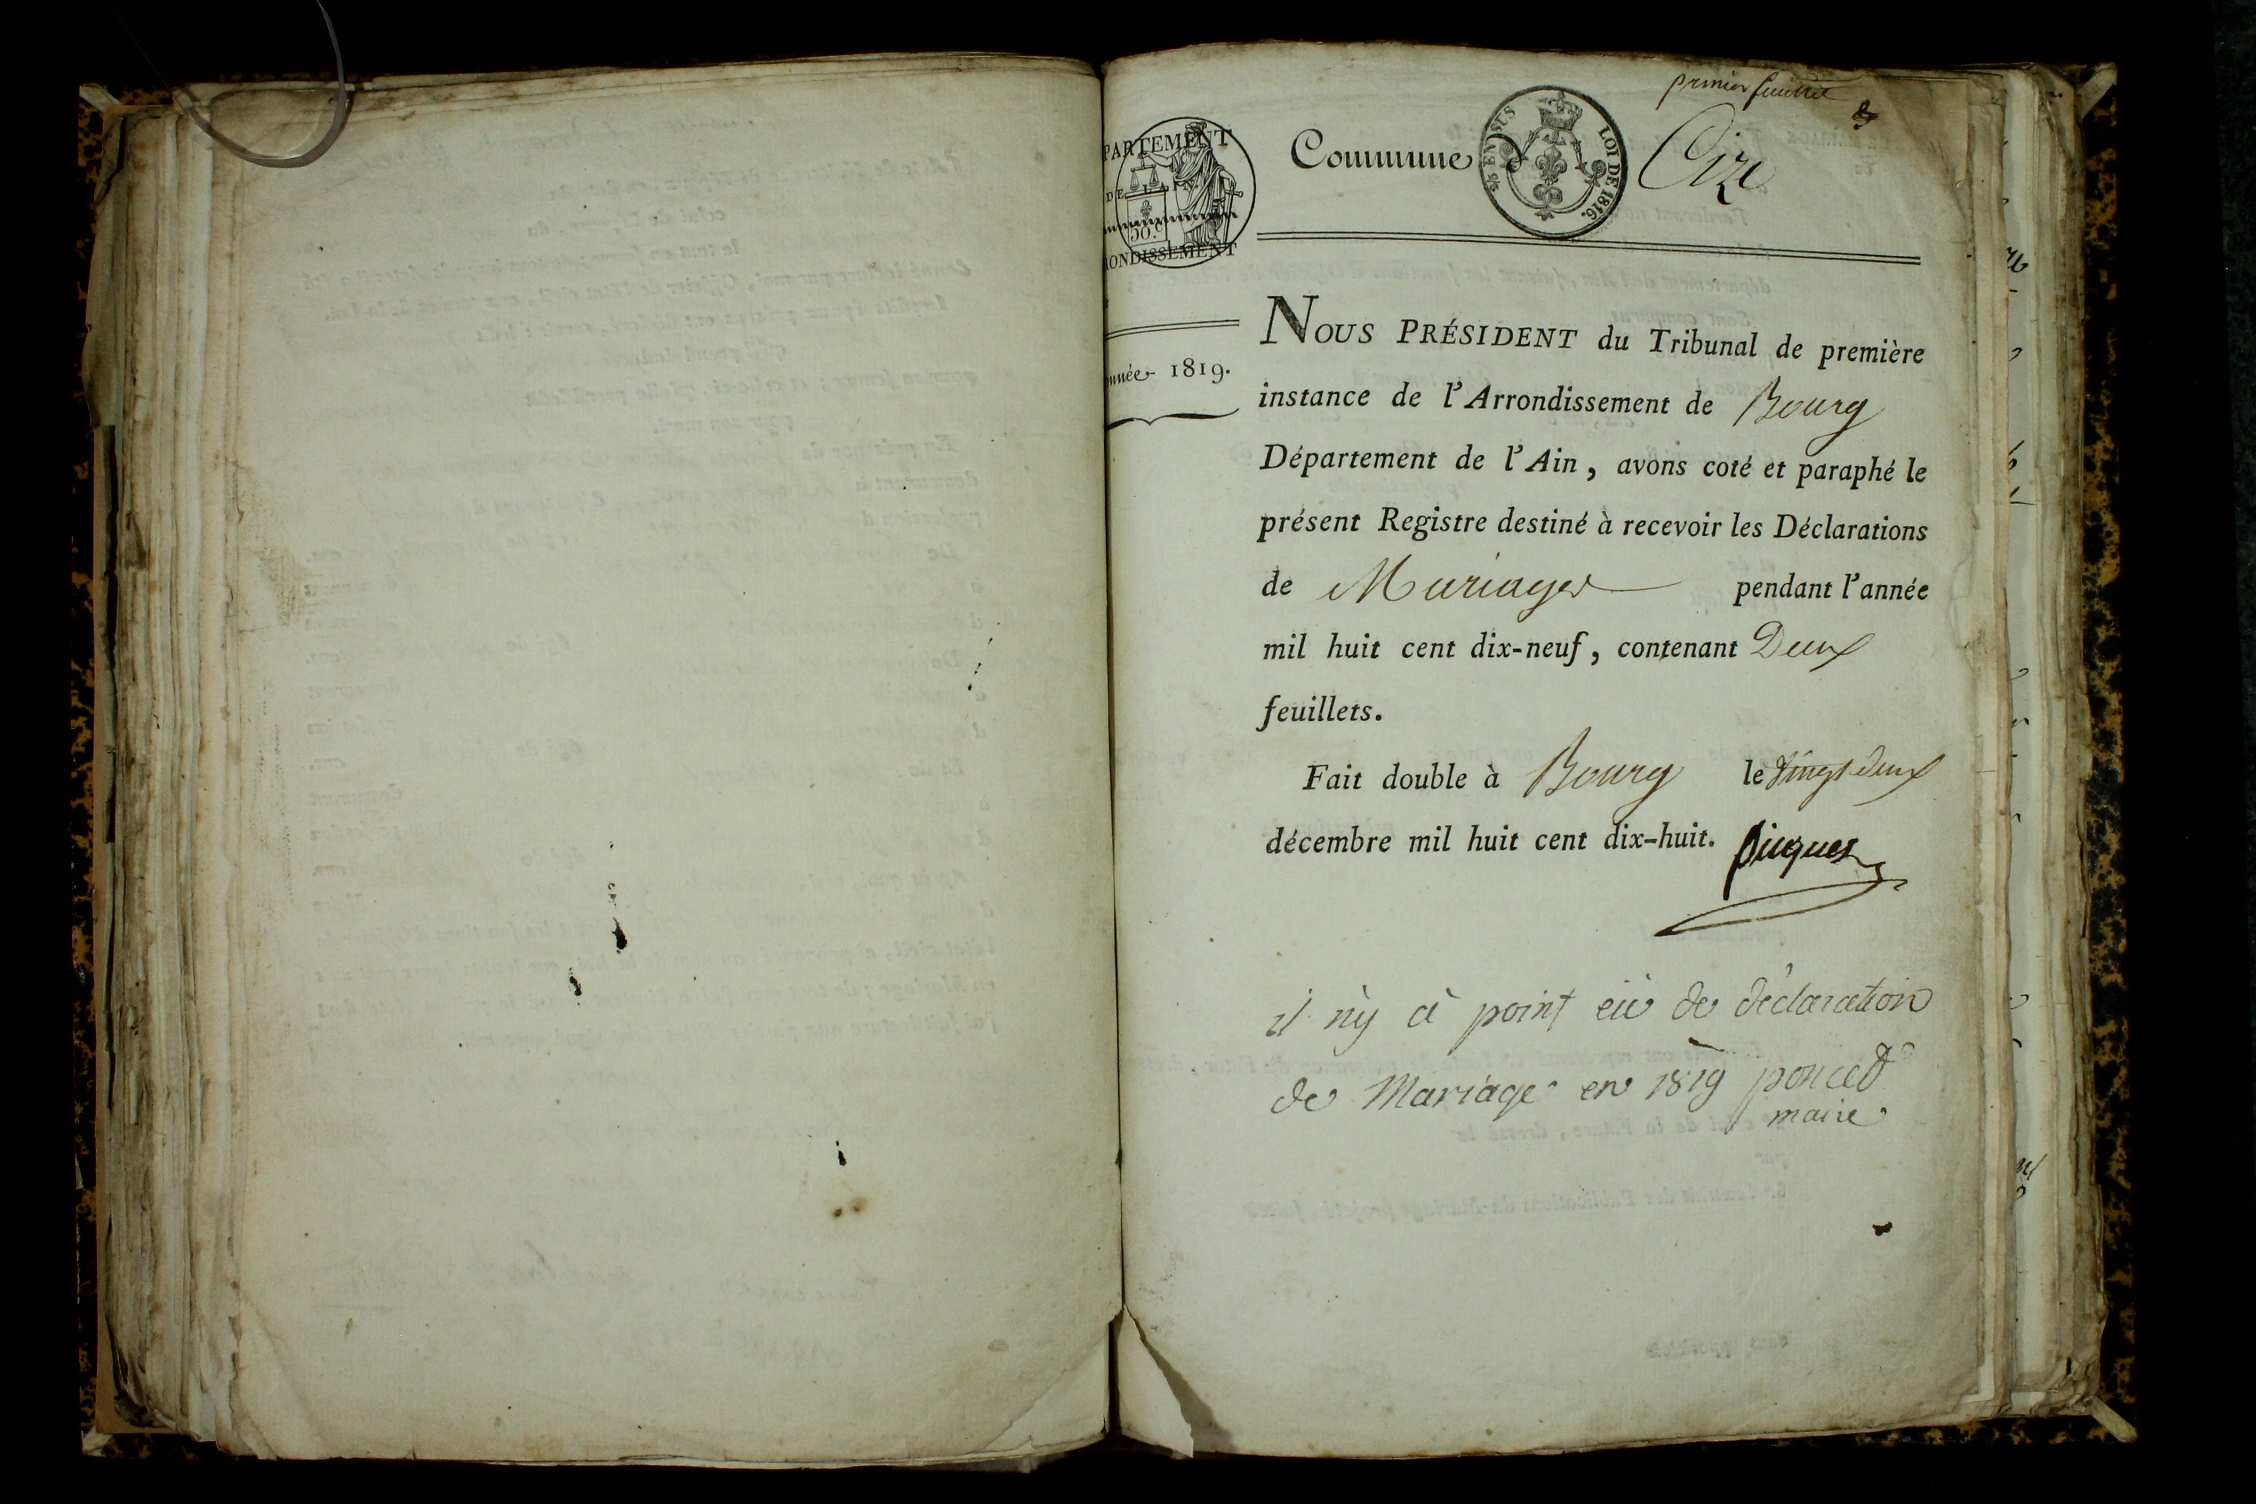 premier feuillet
PARTEMENT
DE L'AIN
50.c
ONDISSEMENT
nnée 1819.
Commune
EN SUS
LOI DE 1816.
Cize
NOUS PRÉSIDENT du Tribunal de première
instance de l'Arrondissement de Bourg
Département de l'Ain, avons coté et paraphé le
présent Registre destiné à recevoir les Déclarations
de Mariages pendant l'année
mil huit cent dix-neuf, contenant Deux
feuillets.
Fait double à Bourg le vingt deux
décembre mil huit cent dix-huit. Picquet
il n'y à point eü de déclaration
de Mariage en 1819 poncet
maire